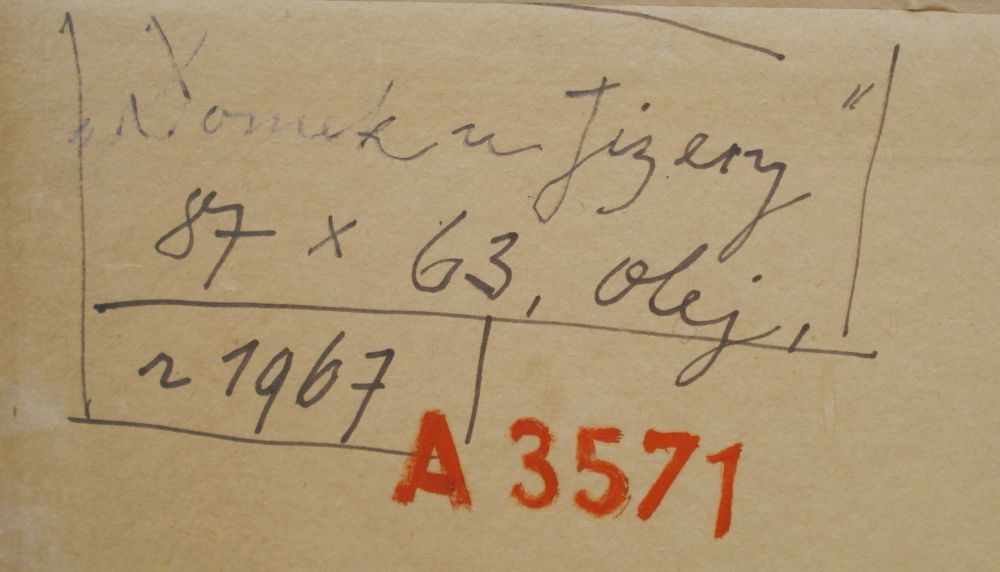 „Domek u Jizery"
87 x 63, olej,
r 1967
A 3571